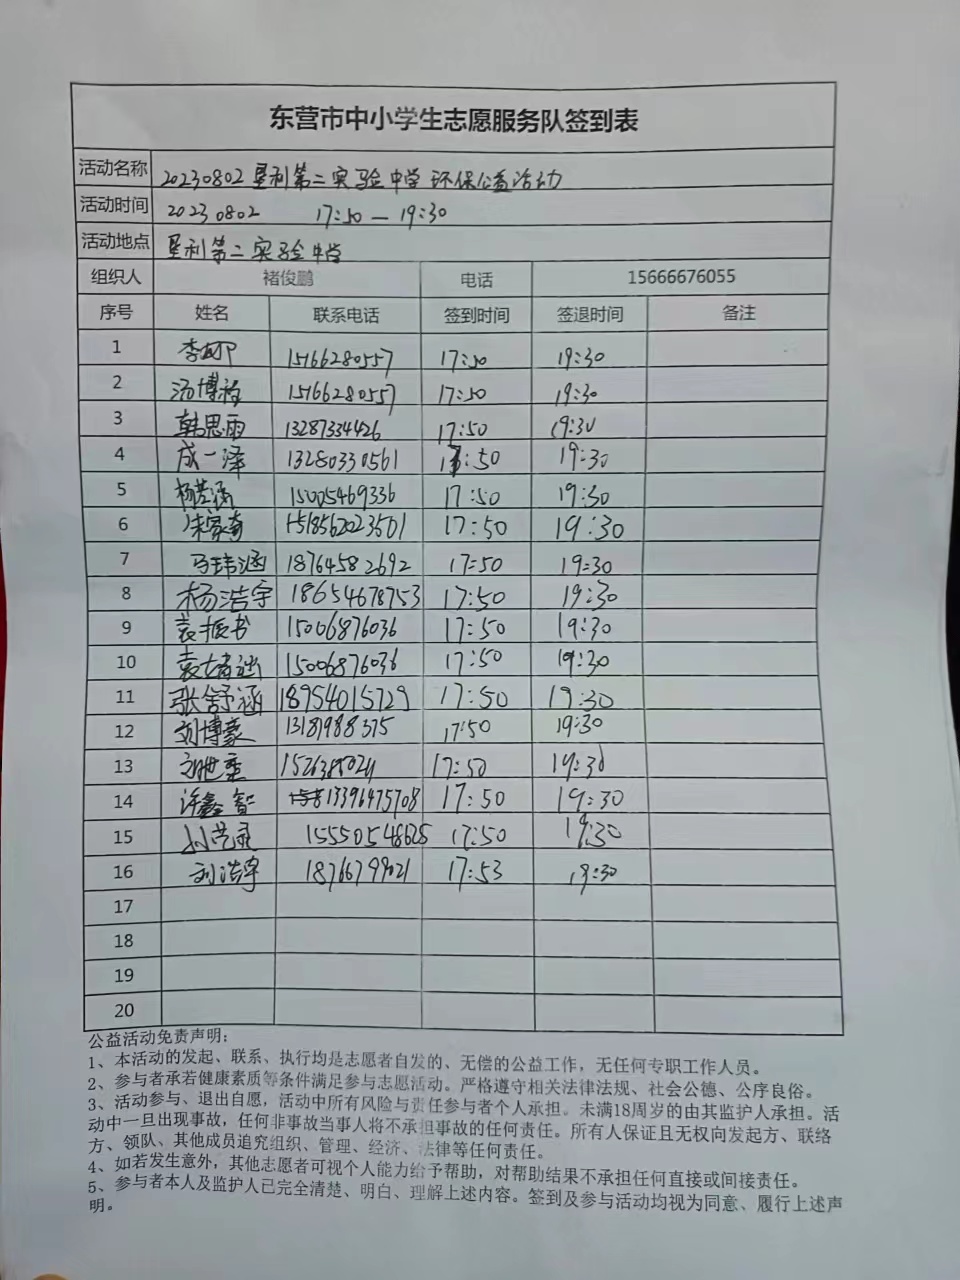 东营市中小学生志愿服务队签到表
活动名称 20230802垦利第二实验中学环保公益活动
活动时间 20230802 17:50—19:30
活动地点 垦利第二实验中学
组织人 褚俊鹏 电话 15666676055
序号 姓名 联系电话 签到时间 签退时间 备注
1 15166280557 17:50 19:30
2 汤博程 15166280557 17:50 19:30
3 韩思雨 13287334426 17:50 19:30
4 成一泽 13280330561 17:50 19:30
5 15005469336 17:50 19:30
6 17:50 19:30
7 马玮涵 18764582692 17:50 19:30
8 杨浩宇 18654678753 17:50 19:30
9 袁振书 15006876036 17:50 19:30
10 15006876036 17:50 19:30
11 张舒涵 18954015729 17:50 19:30
12 刘博豪 13181988375 17:50 19:30
13 17:50 19:30
14 许鑫智 13396475708 17:50 19:30
15 15550548625 17:50 19:30
16 刘浩宇 18766799021 17:53 19:30
17
18
19
20
公益活动免责声明:
1、本活动的发起、联系、执行均是志愿者自发的、无偿的公益工作，无任何专职工作人员。
2、参与者承若健康素质等条件满足参与志愿活动。严格遵守相关法律法规、社会公德、公序良俗。
3、活动参与、退出自愿，活动中所有风险与责任参与者个人承担。未满18周岁的由其监护人承担。活
动中一旦出现事故，任何非事故当事人将不承担事故的任何责任。所有人保证且无权向发起方、联络
方、领队、其他成员追究组织、管理、经济、法律等任何责任。
4、如若发生意外，其他志愿者可视个人能力给予帮助，对帮助结果不承担任何直接或间接责任。
5、参与者本人及监护人已完全清楚、明白、理解上述内容。签到及参与活动均视为同意、履行上述声
明。